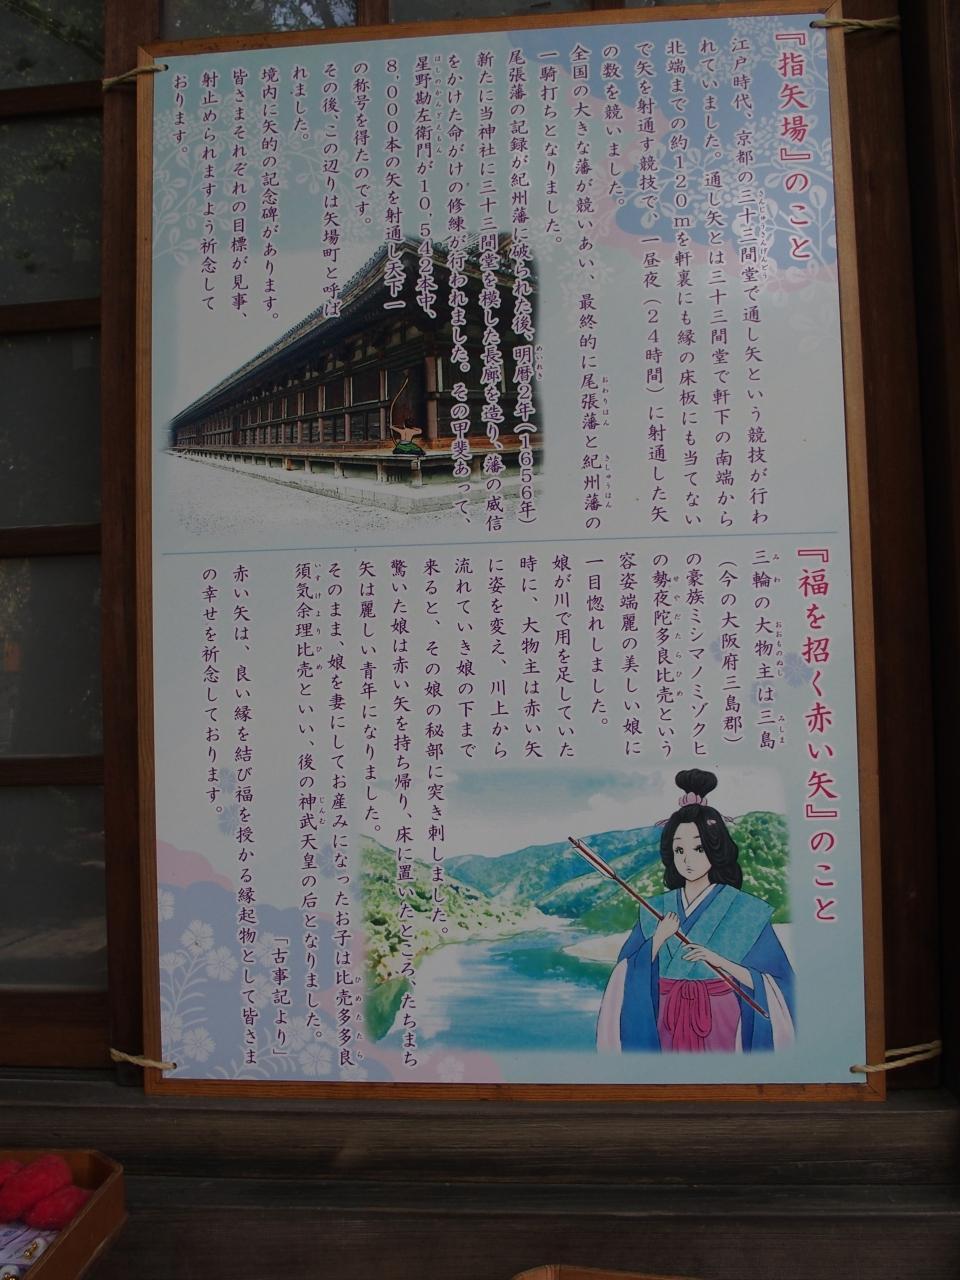 『指矢場』のこと
江戸時代、京都の三十三間堂で通し矢という競技が行わ
さんじゅうさんげんどう
れていました。通し矢とは三十三間堂で軒下の南端から
北端までの約120mを軒裏にも縁の床板にも当てない
で矢を射通す競技で、一昼夜（24時間）に射通した矢
の数を競いました。
全国の大きな藩が競いあい、最終的に尾張藩と紀州藩の
おわりはん
きしゅうはん
一騎打ちとなりました。
尾張藩の記録が紀州藩に破られた後、明暦2年（1656年）
めいれき
新たに当神社に三十三間堂を模した長廊を造り、藩の威信
をかけた命がけの修練が行われました。その甲斐あって、
星野勘左衛門が10,542本中、
ほしのかんざえもん
8,000本の矢を射通し天下一
の称号を得たのです。
その後、この辺りは矢場町と呼ば
れました。
境内に矢的の記念碑があります。
皆さまそれぞれの目標が見事、
射止められますよう祈念して
おります。
『福を招く赤い矢』のこと
三輪の大物主は三島
みわ
おおものぬし
みしま
（今の大阪府三島郡）
の豪族ミシマノミゾクヒ
の勢夜陀多良比売という
せやだたらひめ
容姿端麗の美しい娘に
一目惚れしました。
娘が川で用を足していた
時に、大物主は赤い矢
に姿を変え、川上から
流れていき娘の下まで
来ると、その娘の秘部に突き刺しました。
驚いた娘は赤い矢を持ち帰り、床に置いたところ、たちまち
矢は麗しい青年になりました。
そのまま、娘を妻にしてお産みになったお子は比売多多良
ひめたたら
須気余理比売といい、後の神武天皇の后となりました。
いすけよりひめ
じんむ
「古事記より」
赤い矢は、良い縁を結び福を授かる縁起物として皆さま
の幸せを祈念しております。